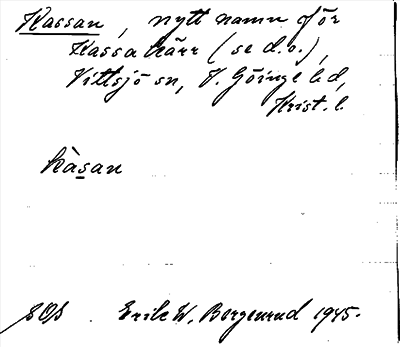 Kassan, nytt namn för
Kassakärr (se d.o.),
Vittsjö sn, V. Göinge hd,
Krist. l.
kàsan
SOS Erik W. Bergenrud 1945.